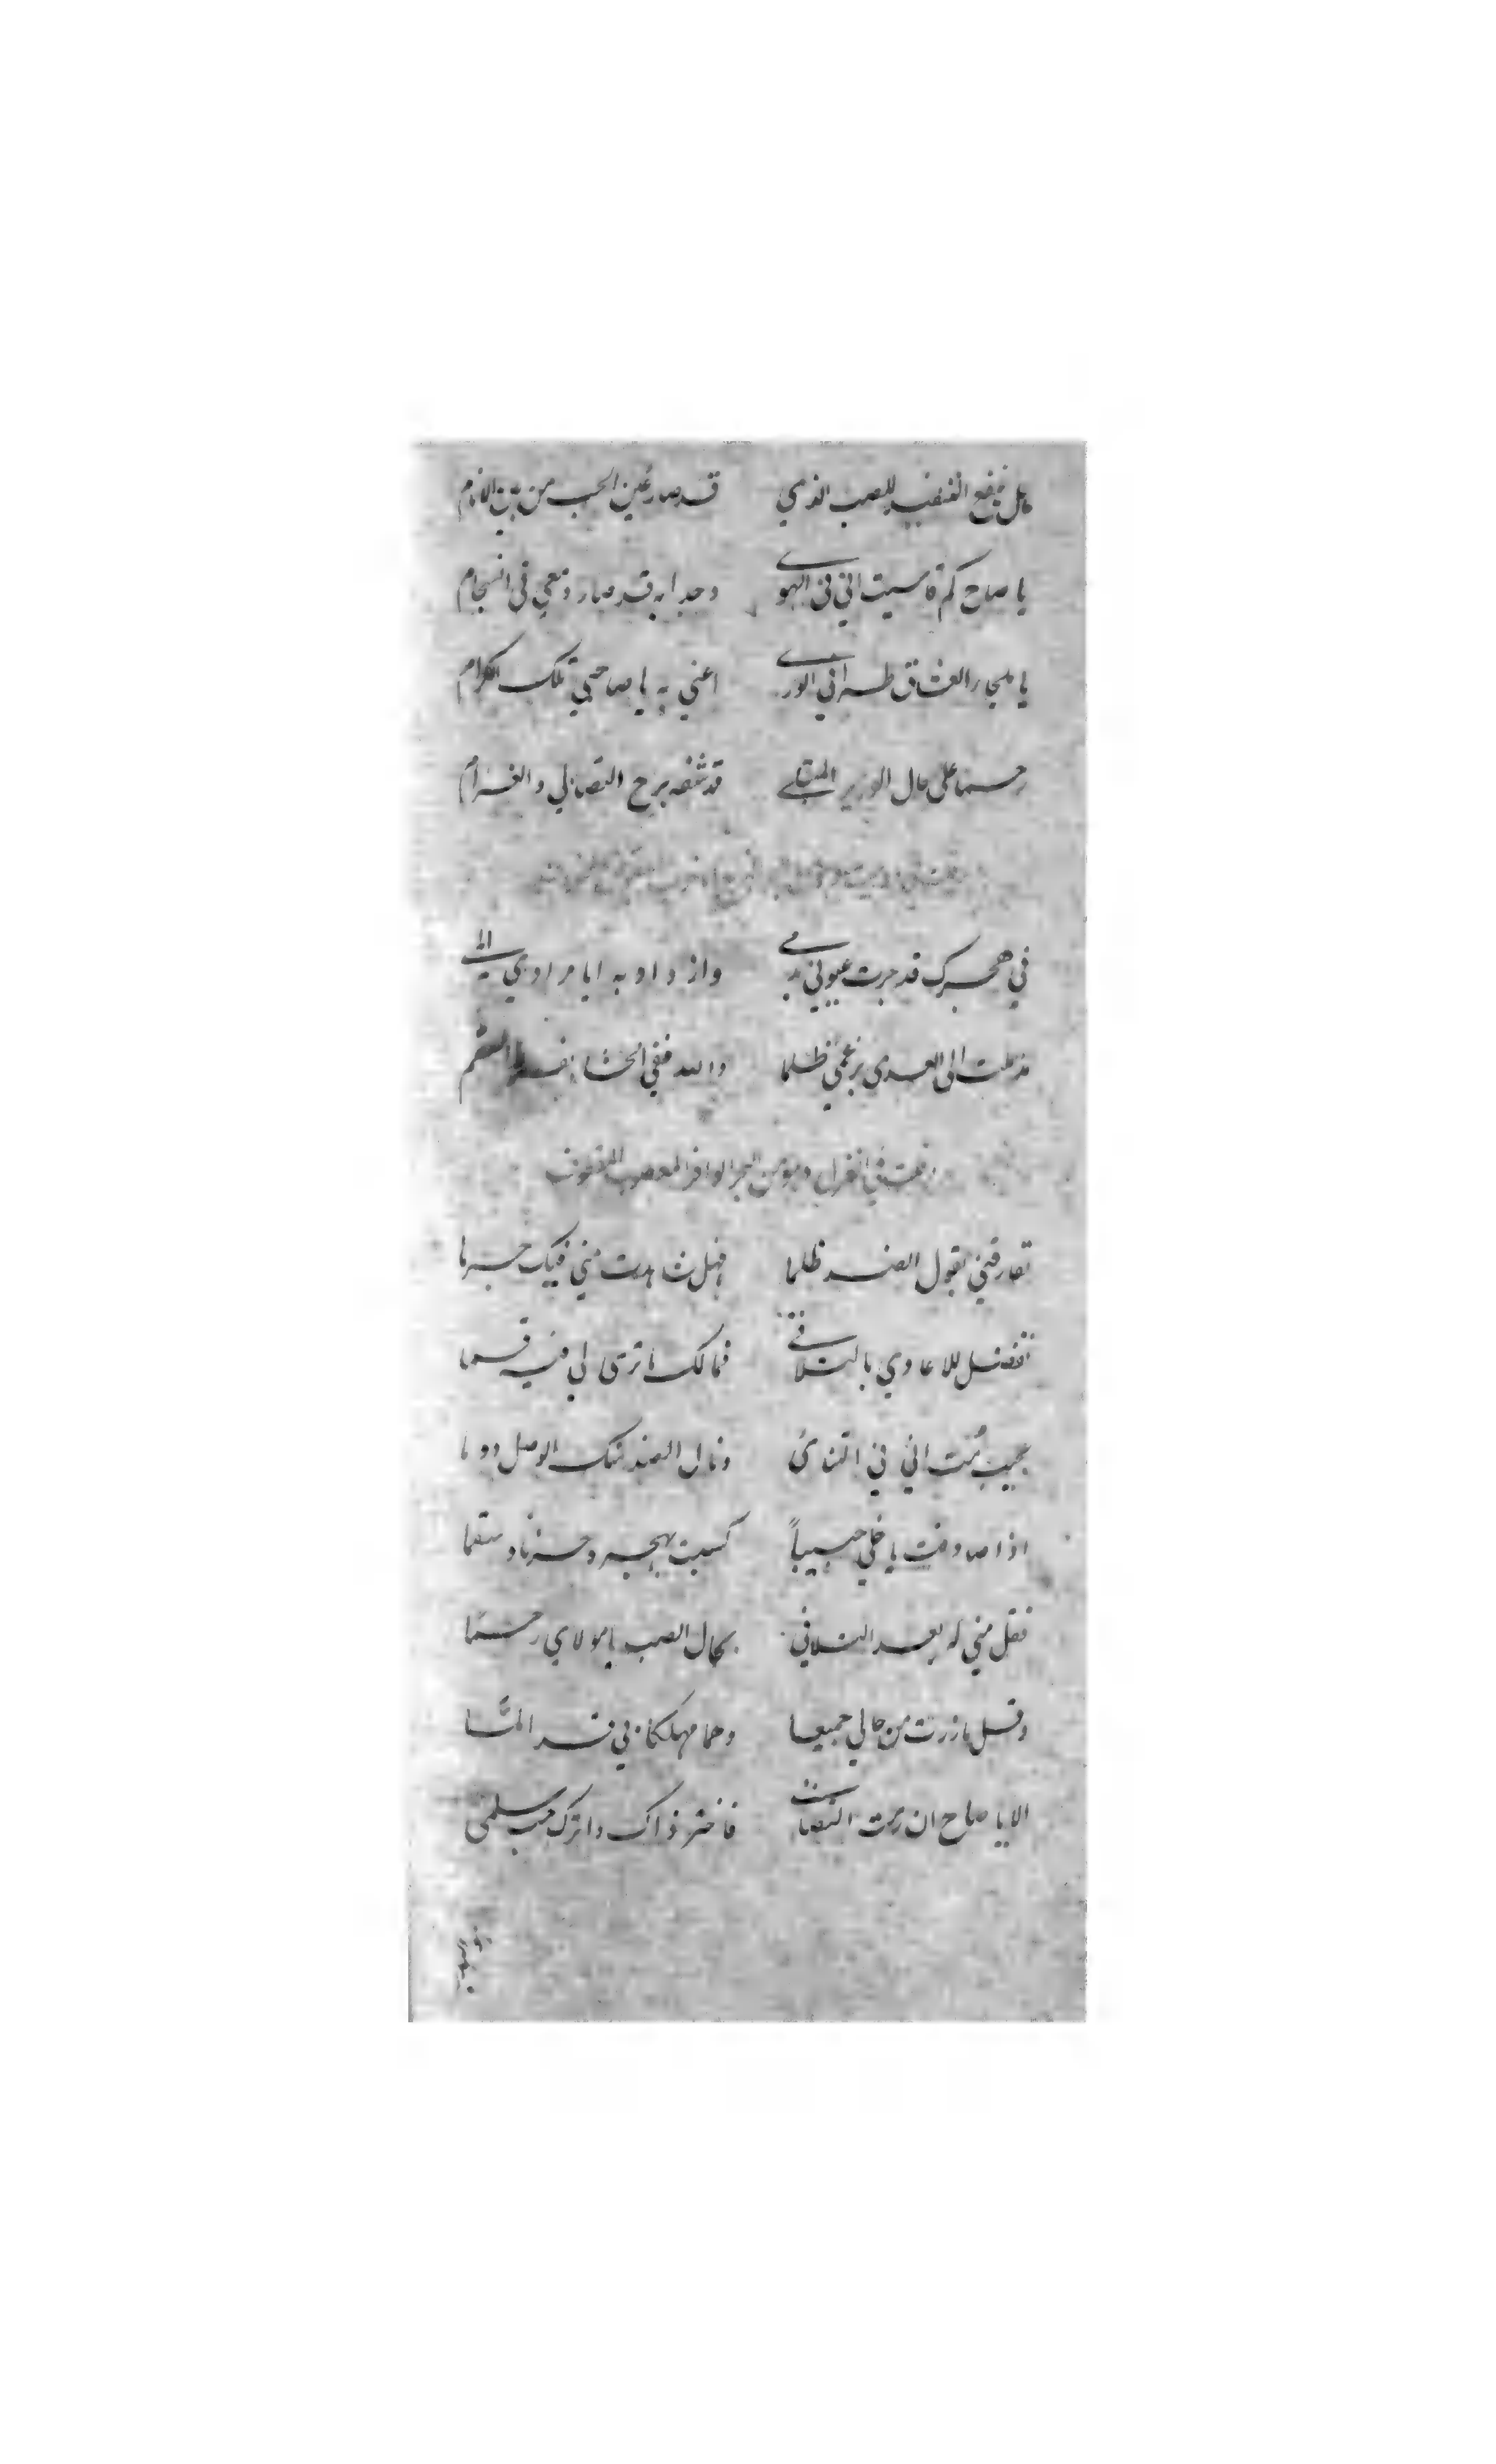 هل ينفع التعنيف للصب الذي قد صار عين الحب من بين الانام
يا صاح كم قاسيت اني في الهوى وجدا به قد صار دمعي في انسجام
يا ملجا العشاق طرا في الورى اعني به يا صاحبي تلك الكرام
رحما على حال الوزير المبتلى قد شفه برح التصابي والغرام
في هجرك قد جرت عيوني بدمي وازداد به ايا مرادي المي
مذ ملت الى العدى برغمي ظلما والله ففي الحشا السقم
وقلت في الغزل وهو من البحر الوافر المعصوب المقطوف
تفارقني بقول الضد ظلما فهل شاهدت مني فيك جرما
تفضل للاعادي بالتلاقي فمالك ما ترى لي فيه قسما
عجيب مت اني في التنائ ونال الضد منك الوصل دوما
اذا صادفت يا خلي حبيباً كسبت بهجره وحزنا وسقما
فقل مني له بعد التلاقي بحال الصب يا مولاي رحما
وقل ما زرت من حالي جميعا وهما مهلكا بي قد المّا
الا يا صاح ان رمت التصابي فاختر ذاك واترك حب سلمى